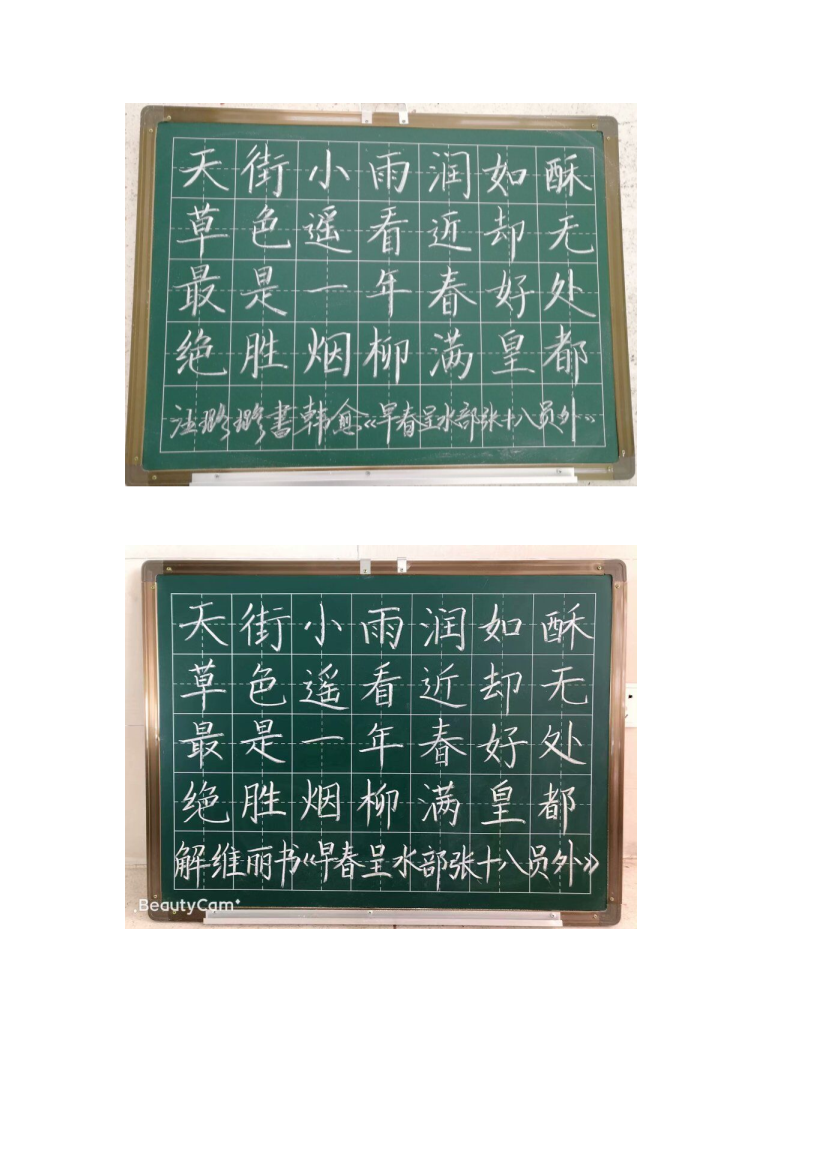 天街小雨润如酥
草色遥看近却无
最是一年春好处
绝胜烟柳满皇都
书韩愈《早春呈水部张十八员外》
天街小雨润如酥
草色遥看近却无
最是一年春好处
绝胜烟柳满皇都
解维丽书《早春呈水部张十八员外》
BeautyCam